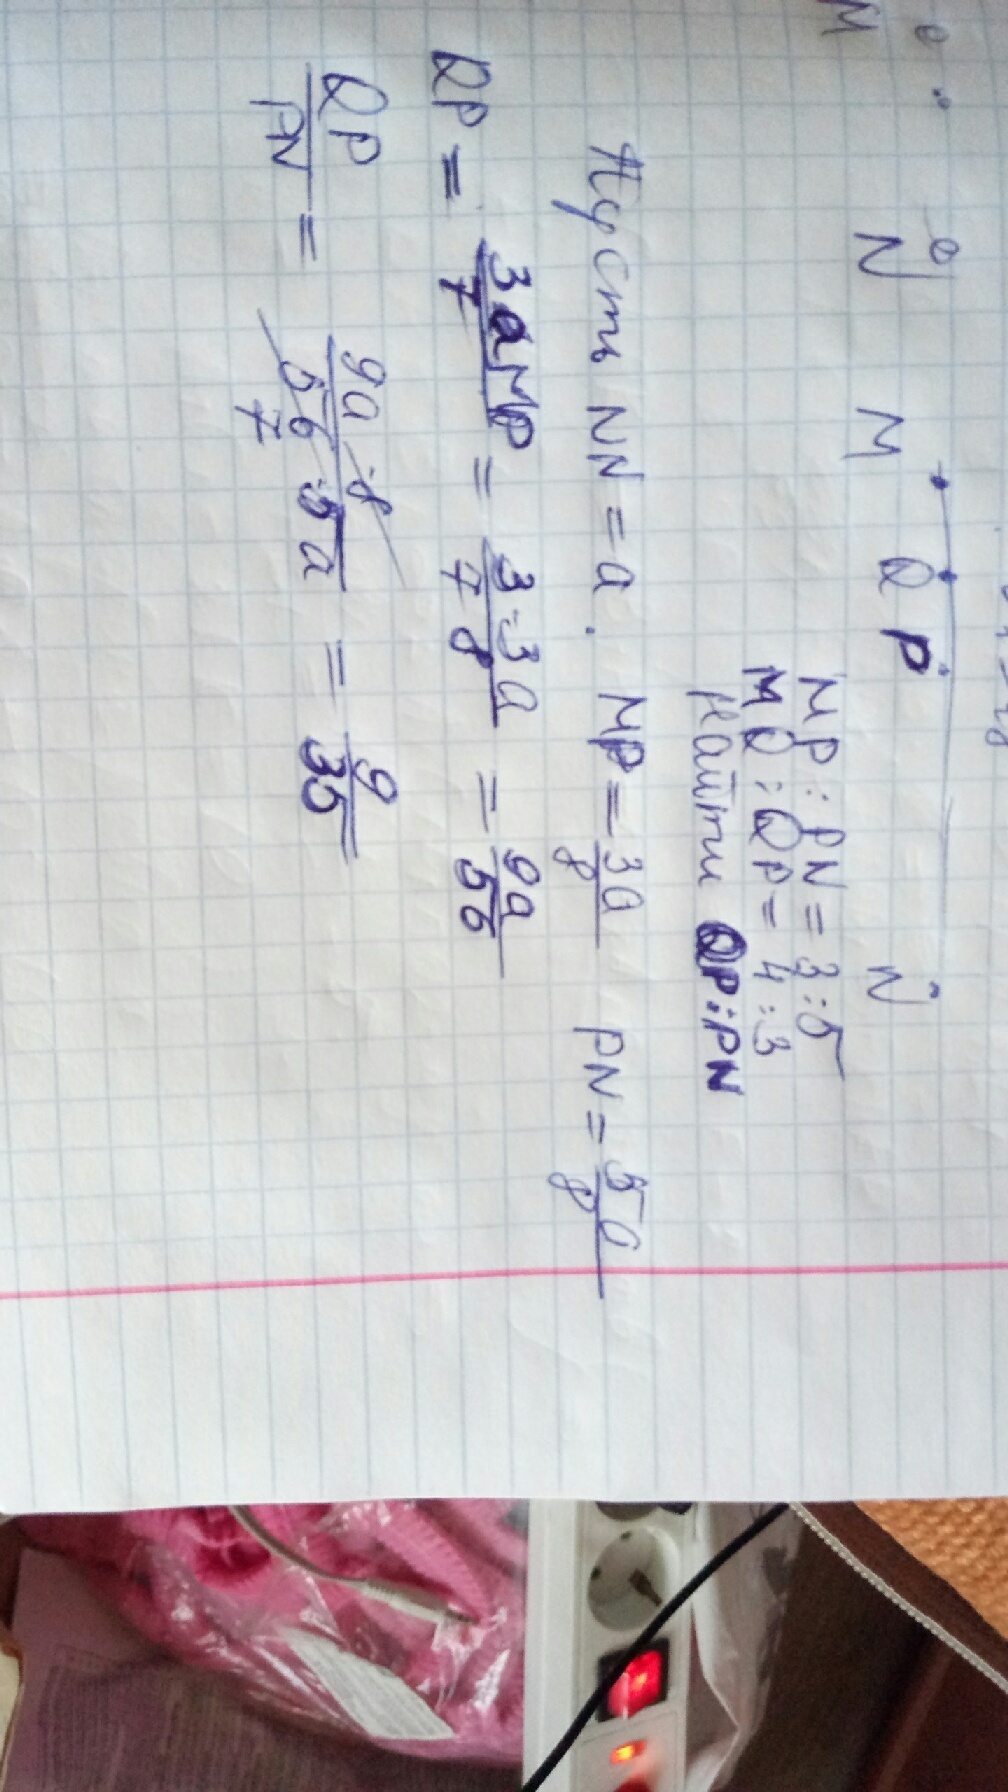 M N M Q P N
MP : PN = 3 : 5
MQ : QP = 4 : 3
Найти QP : PN
Пусть NN = a. MP = 3a/8 PN = 5a/8
QP = 3aMP/7 = 3·3a/7 8 = 9a/56
QP/PN = 9a·8/56·5a 7 = 9/35